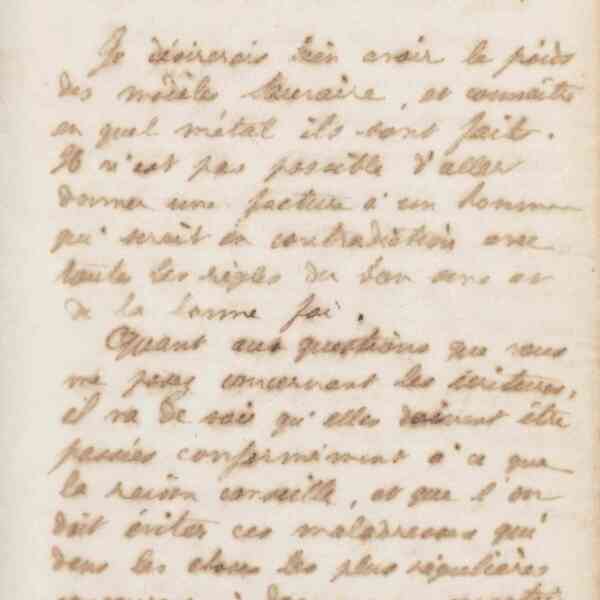 Je désirerais bien avoir le poids
des modèles Lauraire, et connaître
en quel métal ils sont faits.
Il n'est pas possible d'aller
donner une facture à un homme
qui serait en contradiction avec
toutes les règles du bon sens et
de la bonne foi.
Quant aux questions que vous
me posez concernant les écritures,
il va de soi qu'elles doivent être
passées conformément à ce que
la raison conseille, et que l'on
doit éviter ces maladresses qui
dans les choses les plus régulières